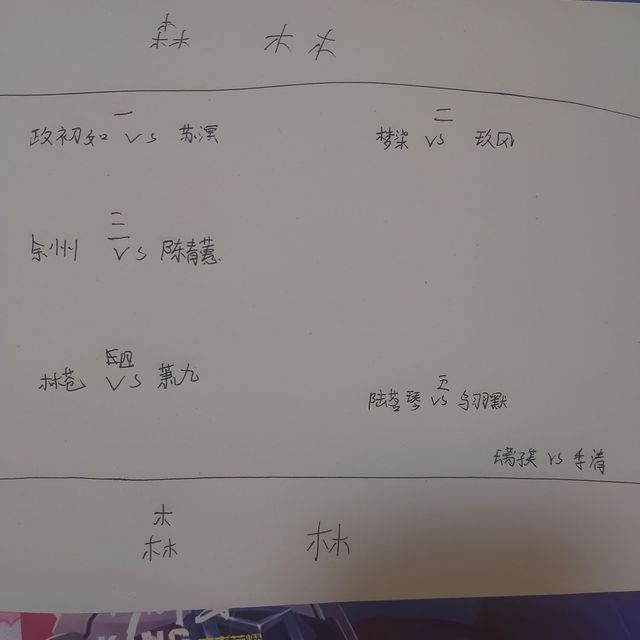 森 林
一 二
政初如 VS 苏溟 梦柒 VS 玖风
三
余州 VS 陈青蕙
四
林苍 VS 萧九
五
陆莒琴 VS 乌羽默
璃孩 VS 李清
森 林
KING